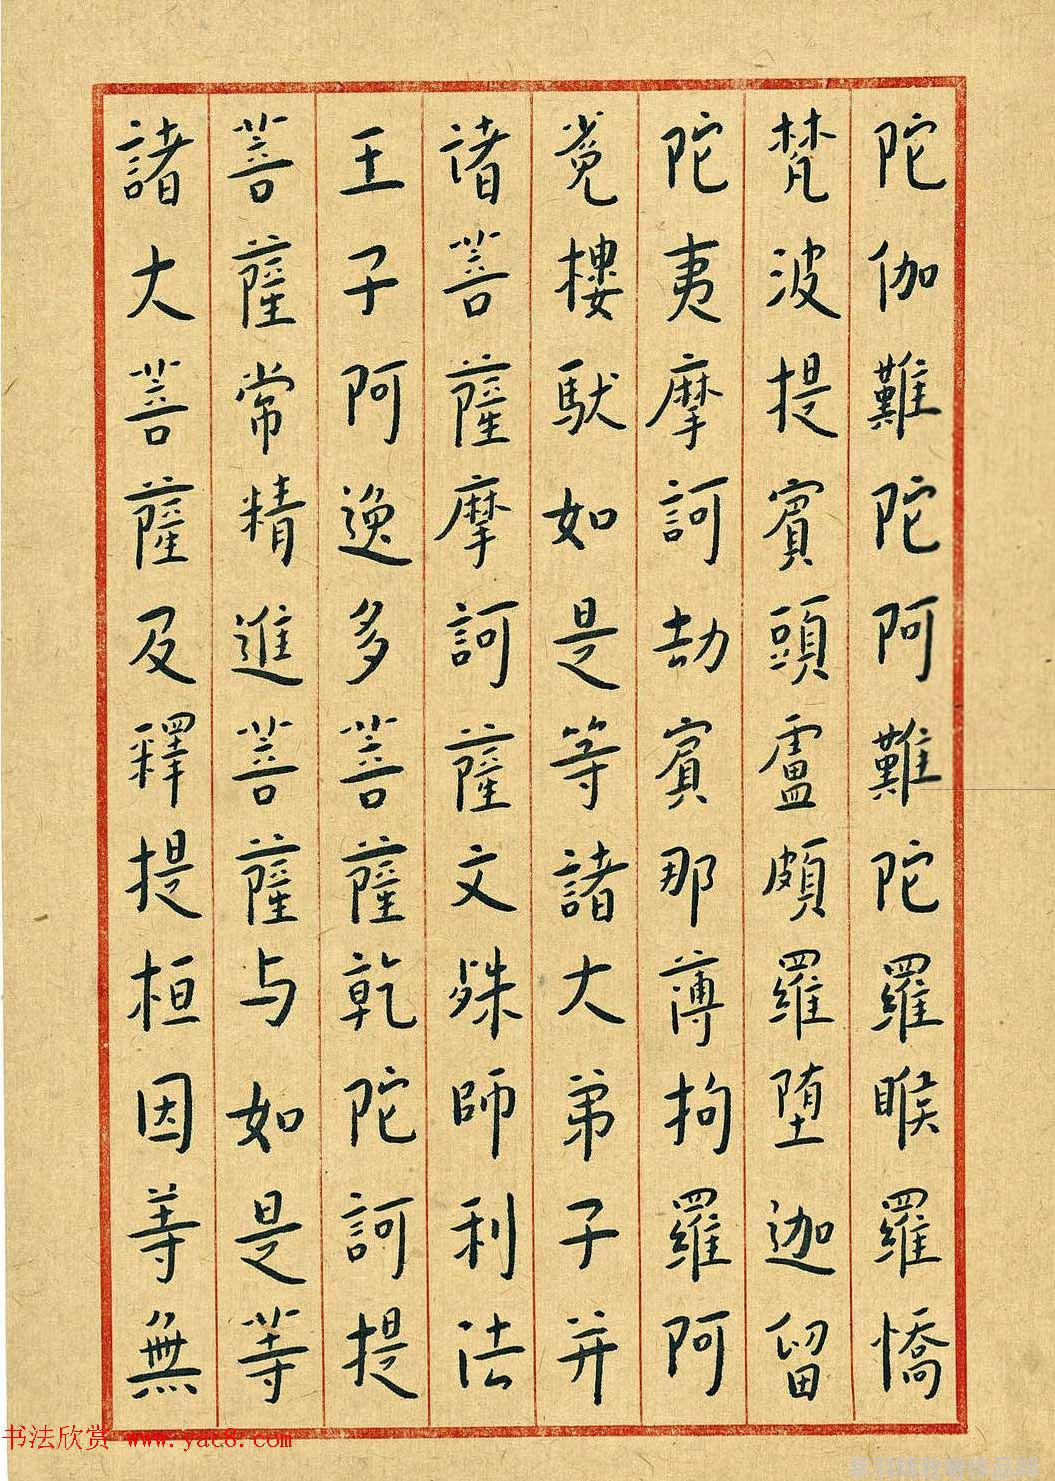 陀伽難陀阿難陀羅睺羅憍
梵波提賓頭盧頗羅墮迦留
陀夷摩訶劫賓那薄拘羅阿
㝹樓馱如是等諸大弟子并
诸菩薩摩訶薩文殊師利法
王子阿逸多菩薩乾陀訶提
菩薩常精進菩薩与如是等
諸大菩薩及釋提桓因等無
书法欣赏 www.yac8.com